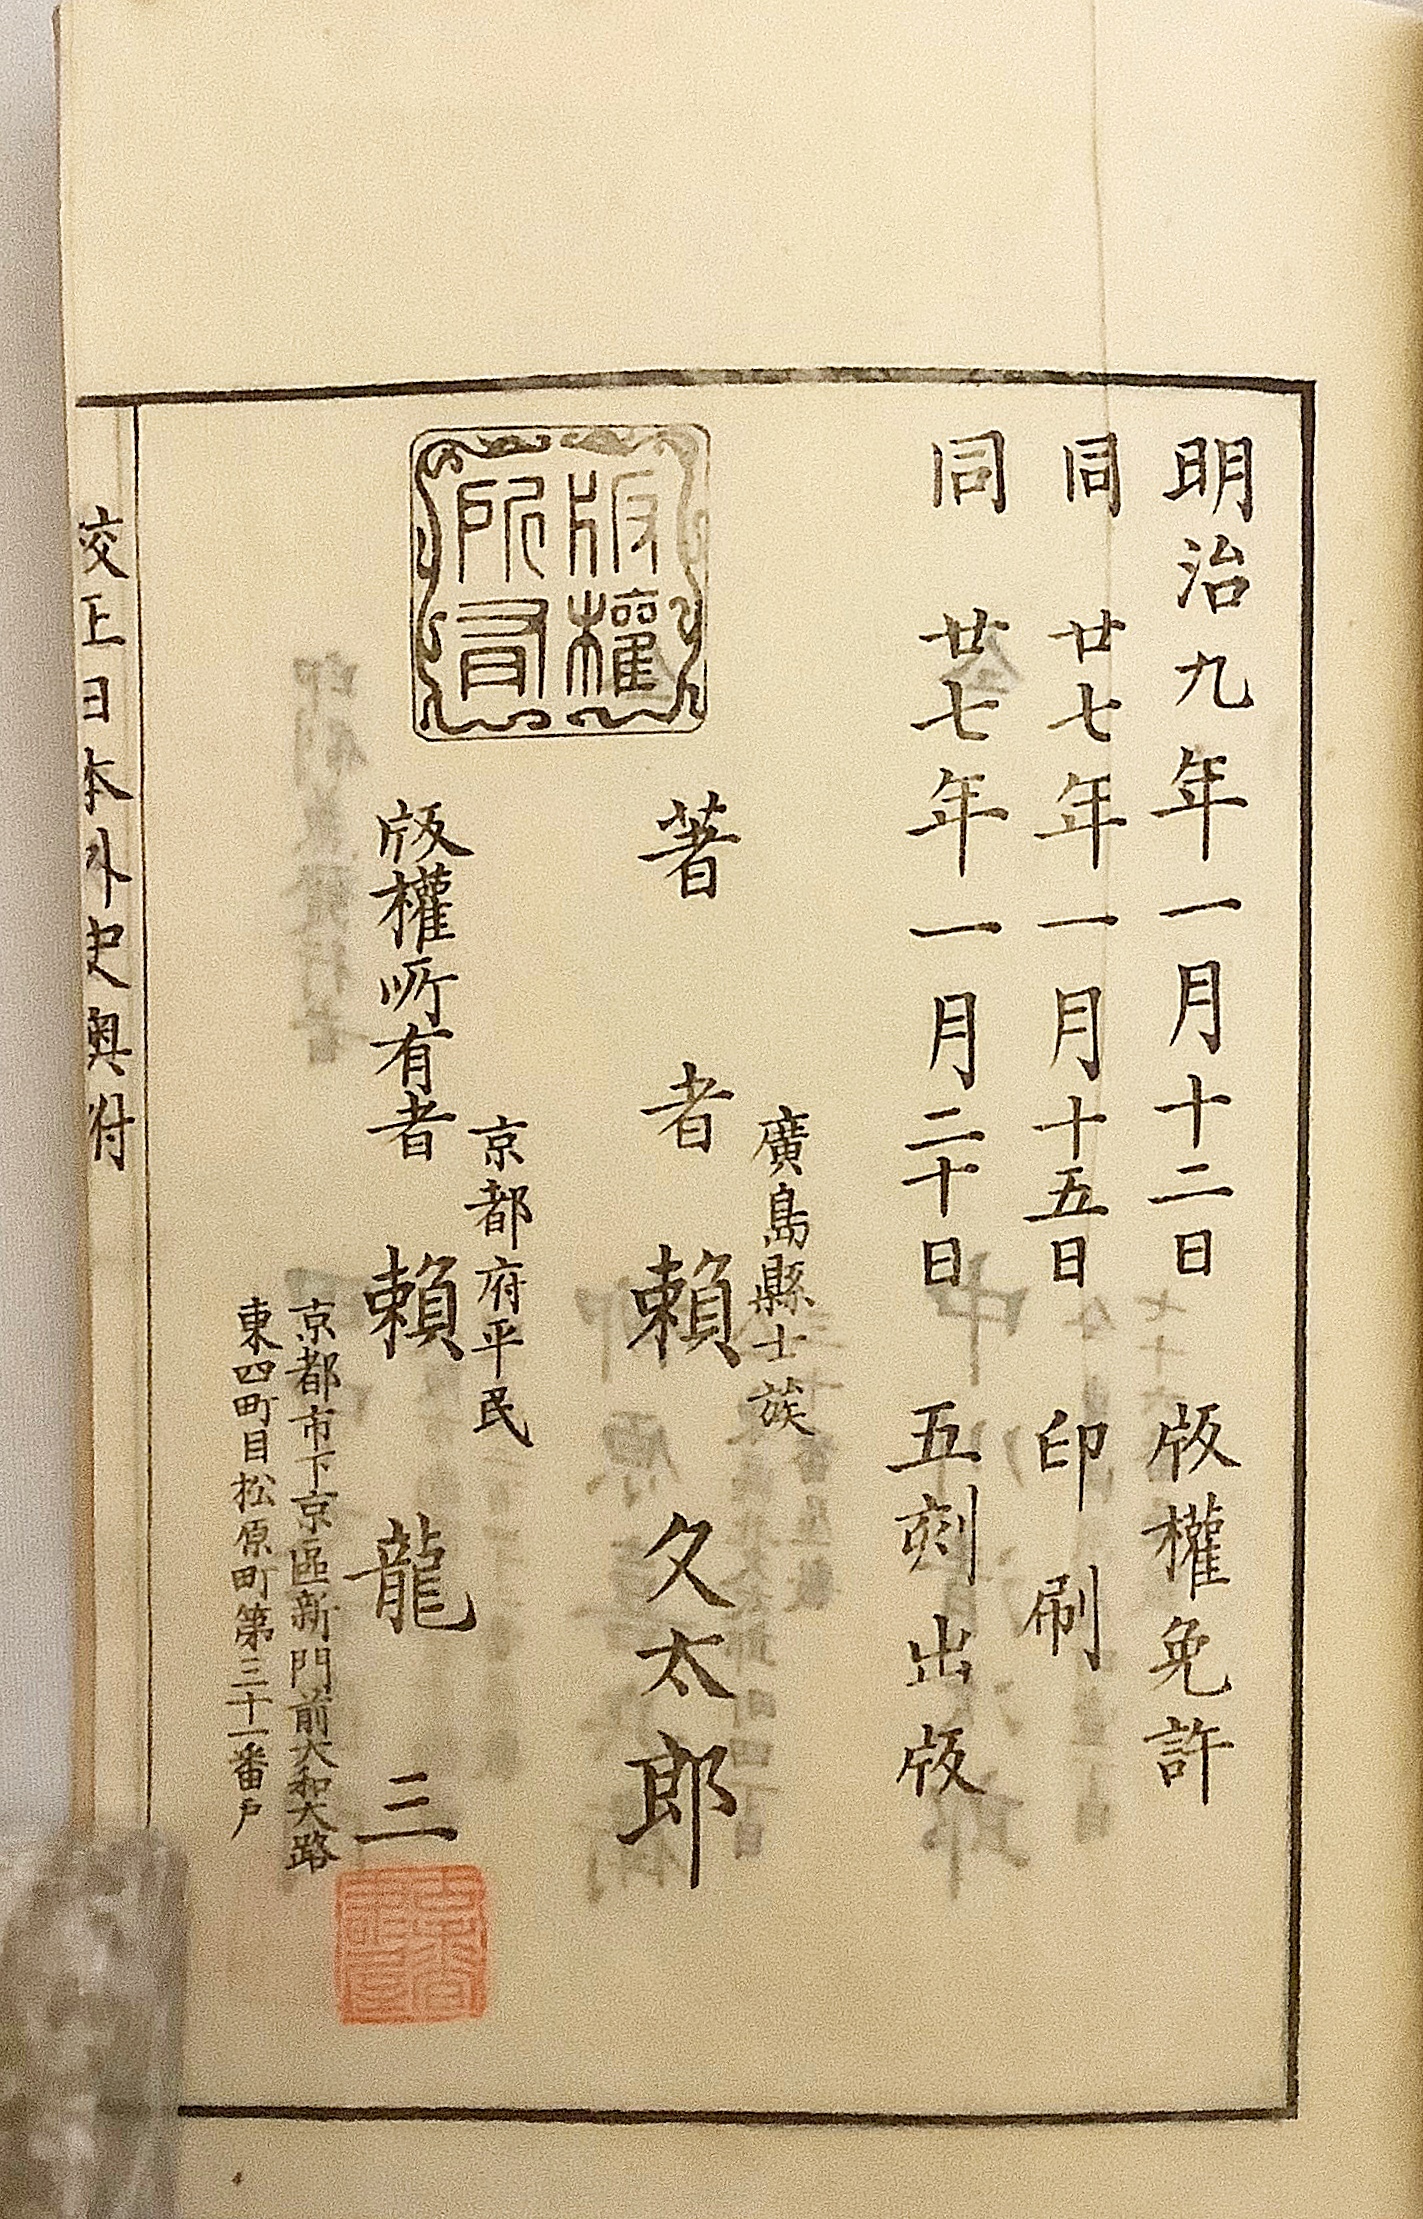 明治九年一月十二日 版權免許
同 廿七年一月十五日 印刷
同 廿七年一月二十日 五刻出版
廣島縣士族
著者 賴 久太郎
版權所有
京都府平民
版權所有者 賴 龍三
京都市下京區新門前大和大路
東四町目松原町第三十一番戶
校正日本外史奧付